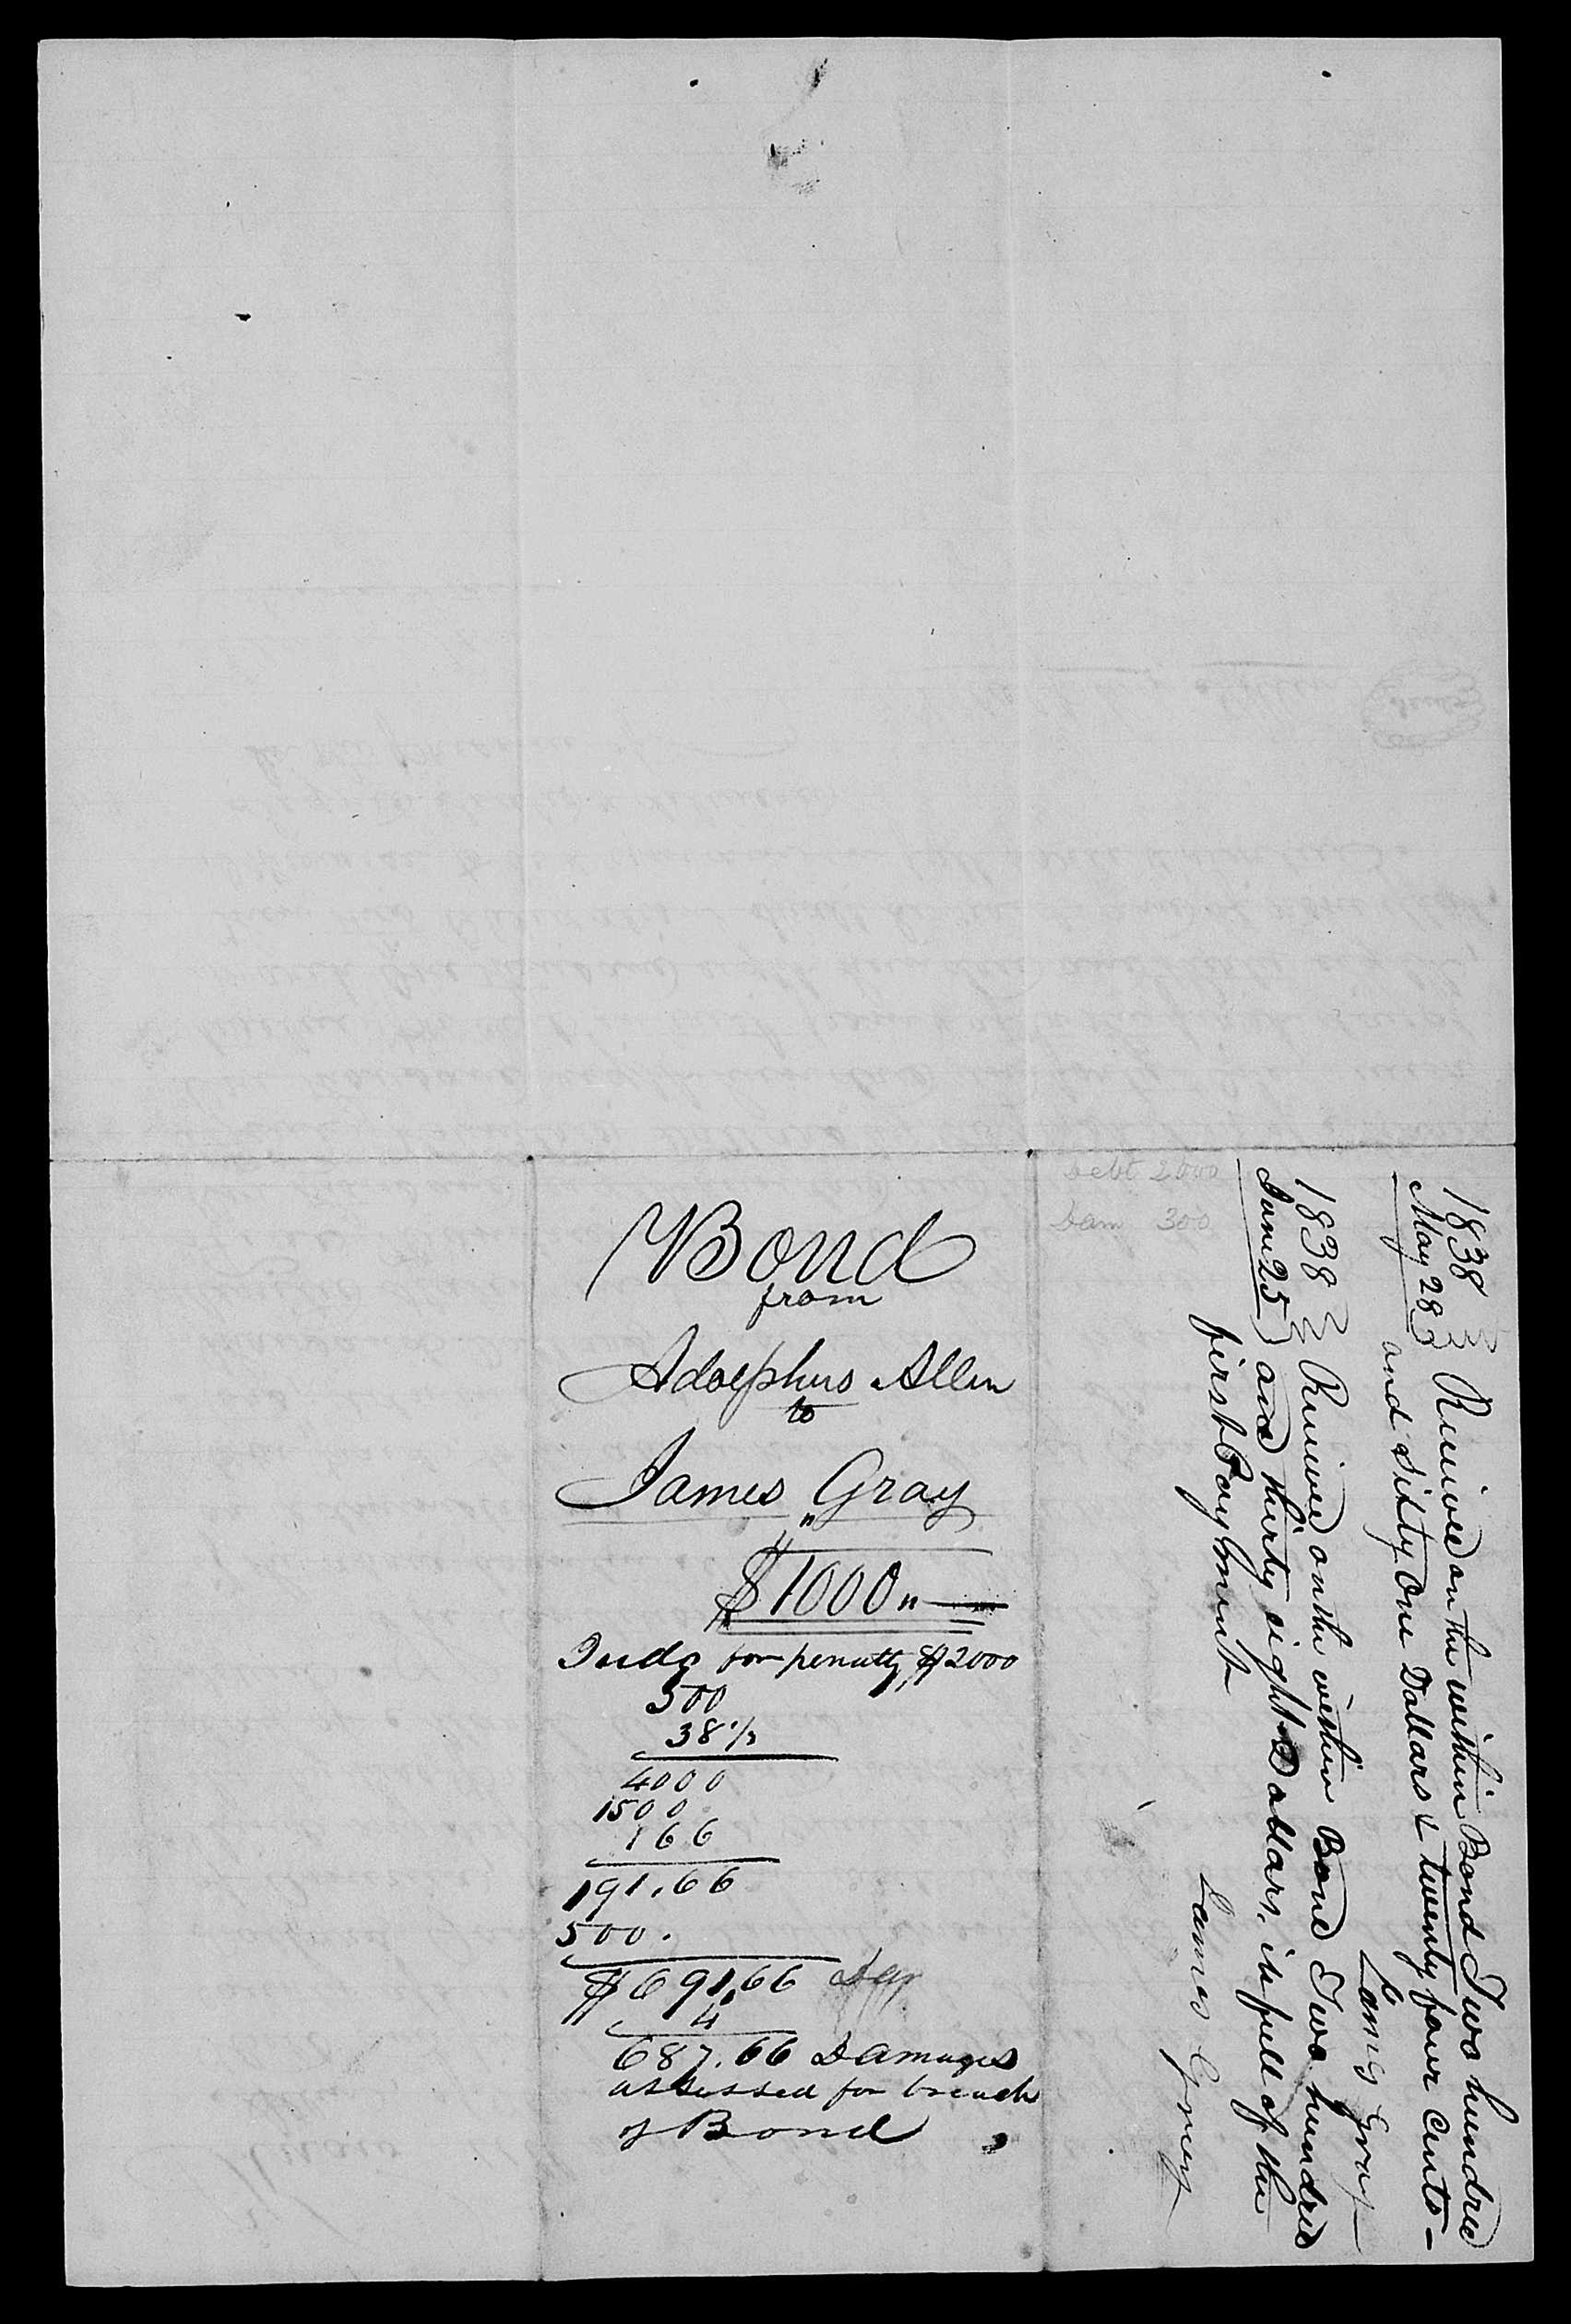 Bond
from
Adolphus Allen
to
James Gray
$1000"
Judg for penalty $2000
500
38 1/3
4000
1500
166
191.66
500.
$691.66 Dam
4
687.66 Damages
assessed for breach
of Bond
debt 2000
Dam 300
1838
May 28 } Received on the within Bond Two hundred
and Sixty One Dollars & twenty four cents -
James Gray
1838 } Received on the within Bond Two hundred
June 25 } and thirty eight Dollars, in full of the
first Payment
James Gray